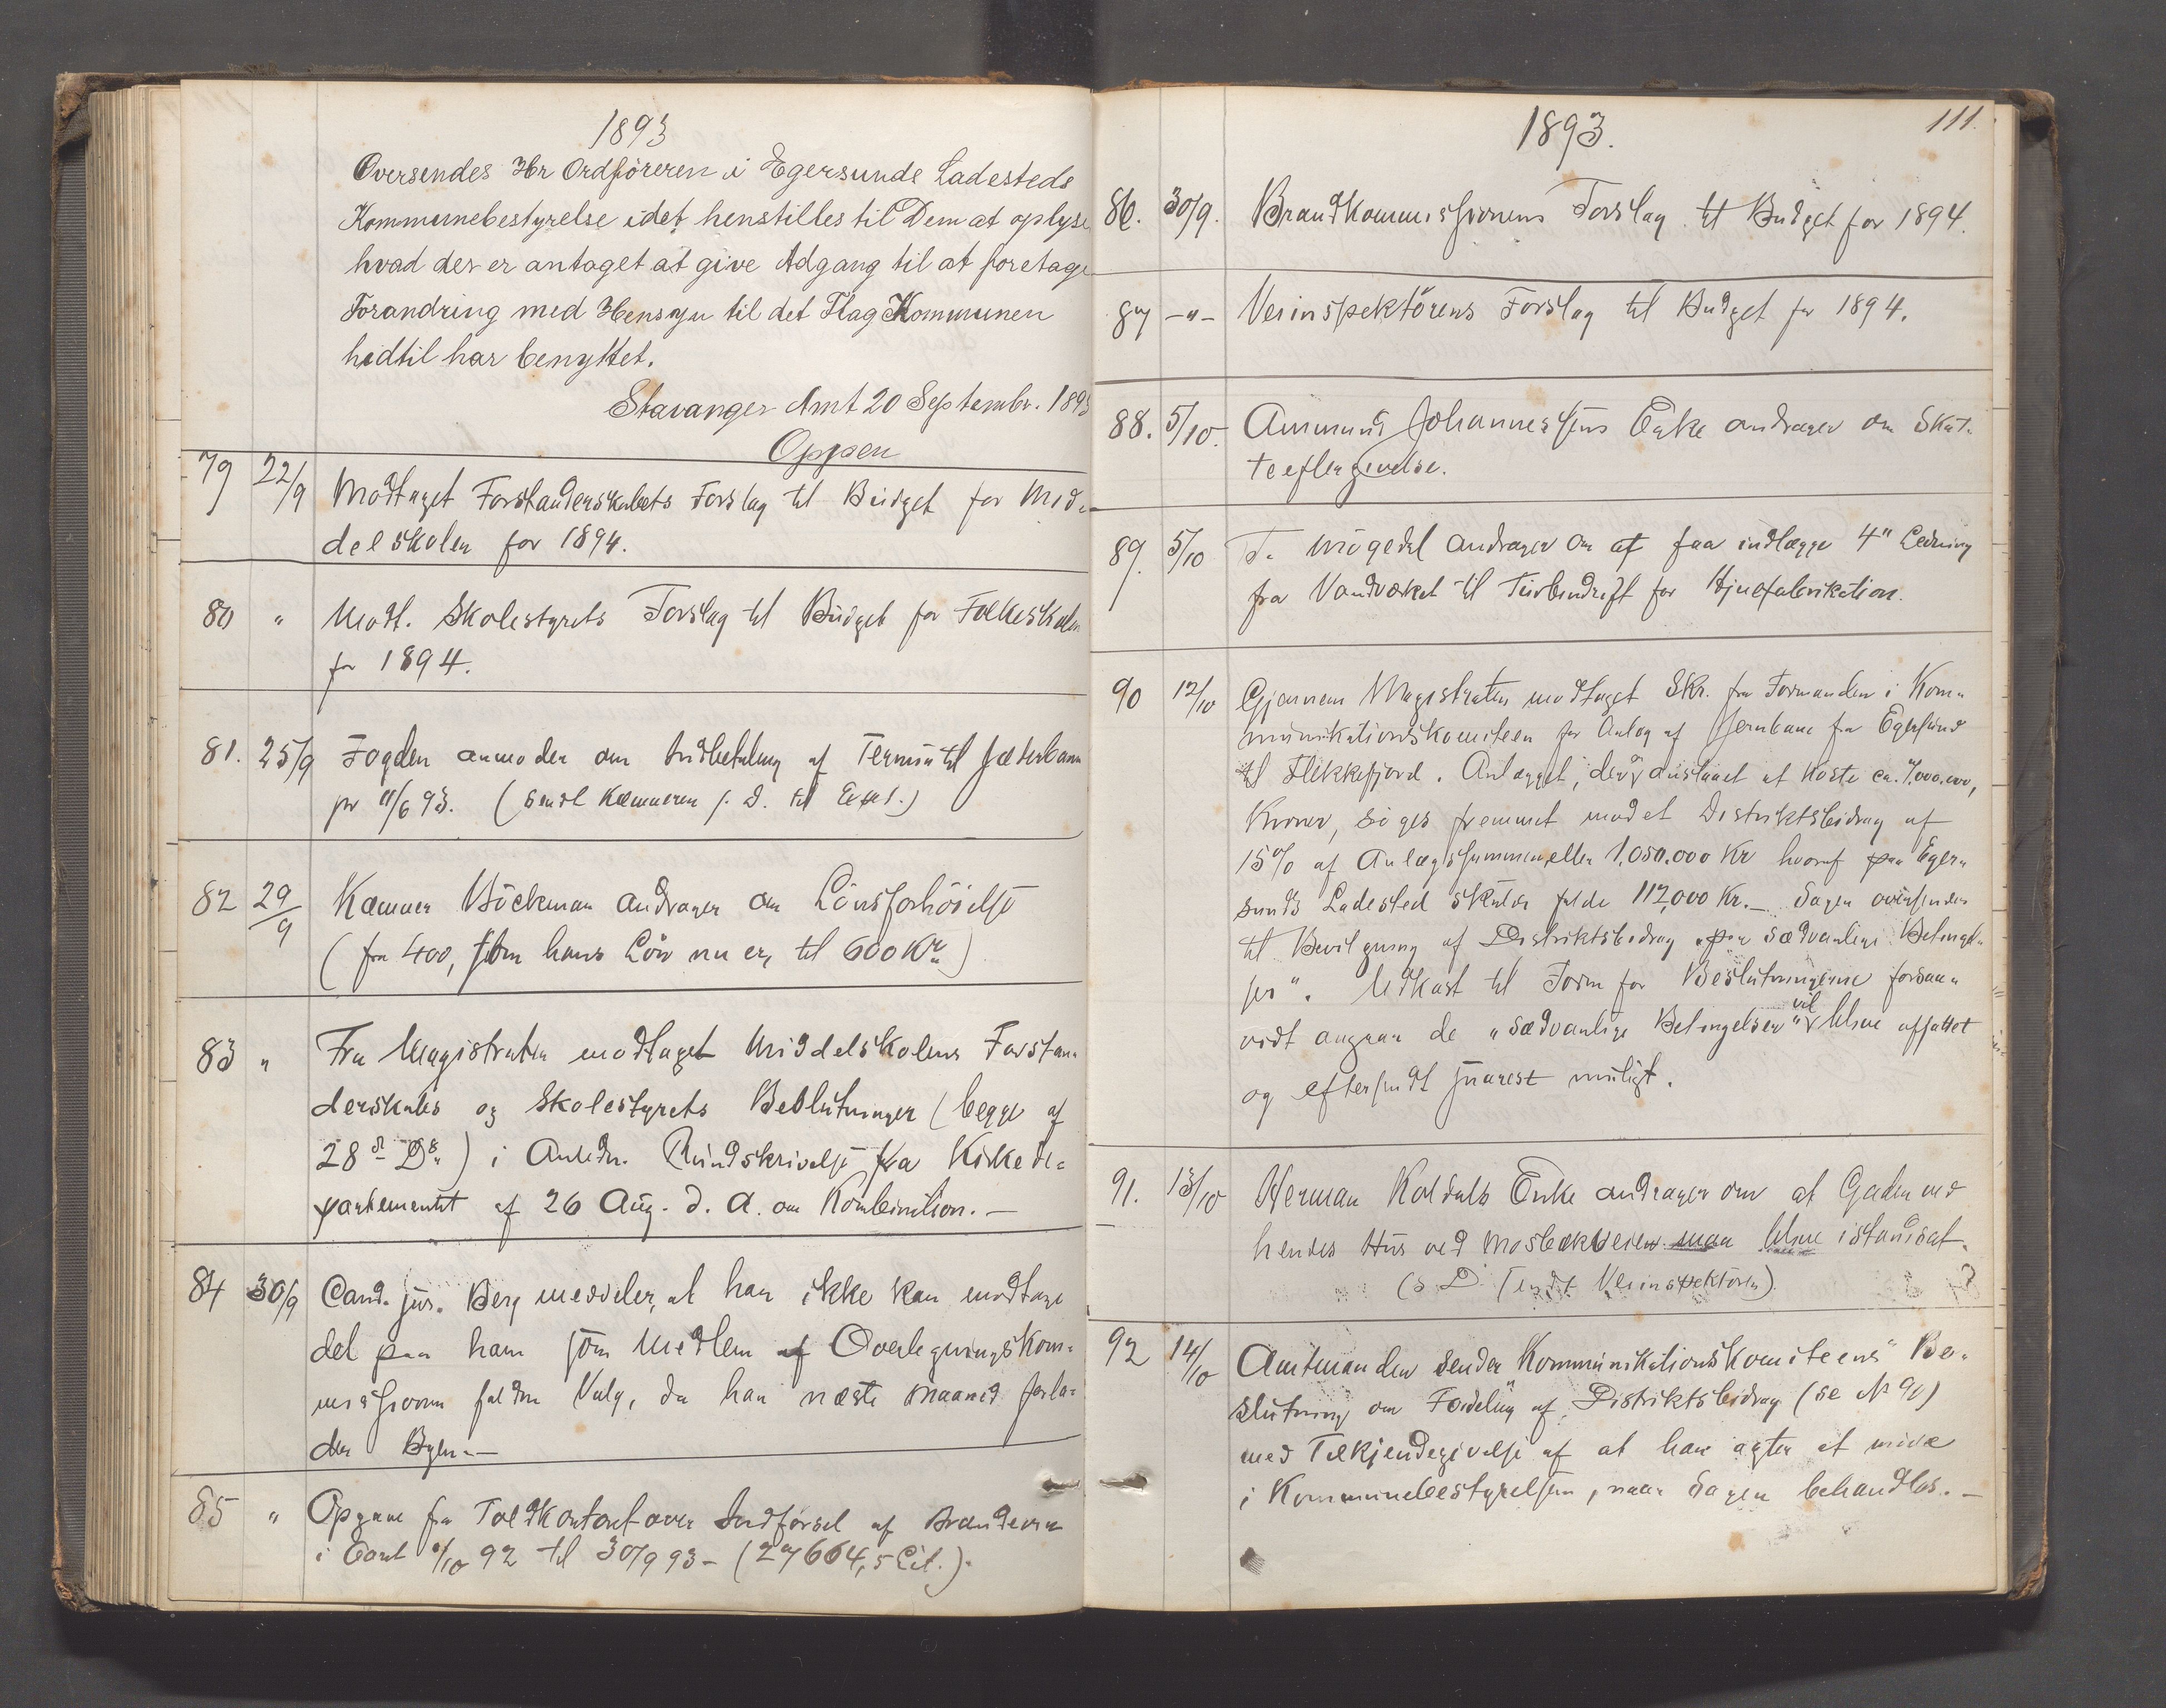 1893
Oversendes Hr Ordföreren i Egersunds Ladesteds
Kommunebestyrelse idet henstilles til Dem at oplyse
hvad der er antaget at give Adgang til at foretage
Forandring med Hensyn til det Flag Kommunen
hidtil har benyttet.
Stavanger Amt 20 Septembr. 1893
Oppen
79 22/9 Modtaget Forstanderskabets Forslag til Budget for Mid-
delskolen for 1894.
80 " Modt. Skolestyrets Forslag til Budget for Folkeskolen
for 1894.
81. 25/9 Fogden anmoder om Indbetaling af Termin til Jæderbanen
pr 11/6 93. (sendt Kæmneren s. D. til )
82 29/9 Kæmner Böckman andrager om Lönsforhöielse
(fra 400, som hans Lön nu er, til 600 Kr)
83 " Fra Magistraten modtaget Middelskolens Forstan-
derskabs og Skolestyrets Beslutninger (begge af
28 d. D.) i Anledn. Rundskrivelse fra Kirkede-
partementet af 26 Aug. d. A. om Kombination.—
84 30/9 Cand. jur. Berg meddeler, at han ikke kan modtage
det paa ham som Medlem af Overligningskom-
missionen faldne Valg, da han næste Maaned forla-
der Byen.—
85 " Opgave fra Toldkontoret over Indförsel af Brændevin
i Aaret 1/10 92 til 30/9 93 - (27664,5 Lit.).
1893. 111.
86. 30/9. Brandkommissionens Forslag til Budget for 1894.
87 -"- Veiinspektörens Forslag til Budget for 1894.
88. 5/10. Ammund Johannessens Enke andrager om Skat-
teeftergivelse.
89. 5/10 T. Mögedal andrager om at faa indlægge 4" Ledning
fra Vandværket til Turbindrift for Hjulfabrikation.
90 12/10 Gjennem Magistraten modtaget Skr. fra Formanden i Kom-
munikationskomiteen for Anlæg af Jernbane fra Egersund
til Flekkefjord. Anlægget, der er anslaaet at koste ca. 7.000.000,
Kroner, söges fremmet mod et Distriktsbidrag af
15% af Anlægssummen eller 1,050.000 Kr hvoraf paa Eger-
sunds Ladested skulde falde 112,000 Kr.— Sagen oversendes
til Bevilgning af Distriktsbidrag "paa sædvanlige Betingel-
ser". Udkast til Form for Beslutningerne forsaa-
vidt angaar de "sædvanlige Betingelser" vil blive affattet
og eftersendt snarest muligt.
91. 13/10 Herman Koldals Enke andrager om at Gaden ved
hendes Hus ved Mosbækveien maa blive istandsat.
(s. D. sendt Veiinspektören)
92 14/10 Amtmanden sender "Kommunikationskomiteens" Be-
slutning om Fordeling af Distriktsbidrag (se No 90)
med Tilkjendegivelse af at han agter at möde
i Kommunebestyrelsen, naar Sagen behandles.—